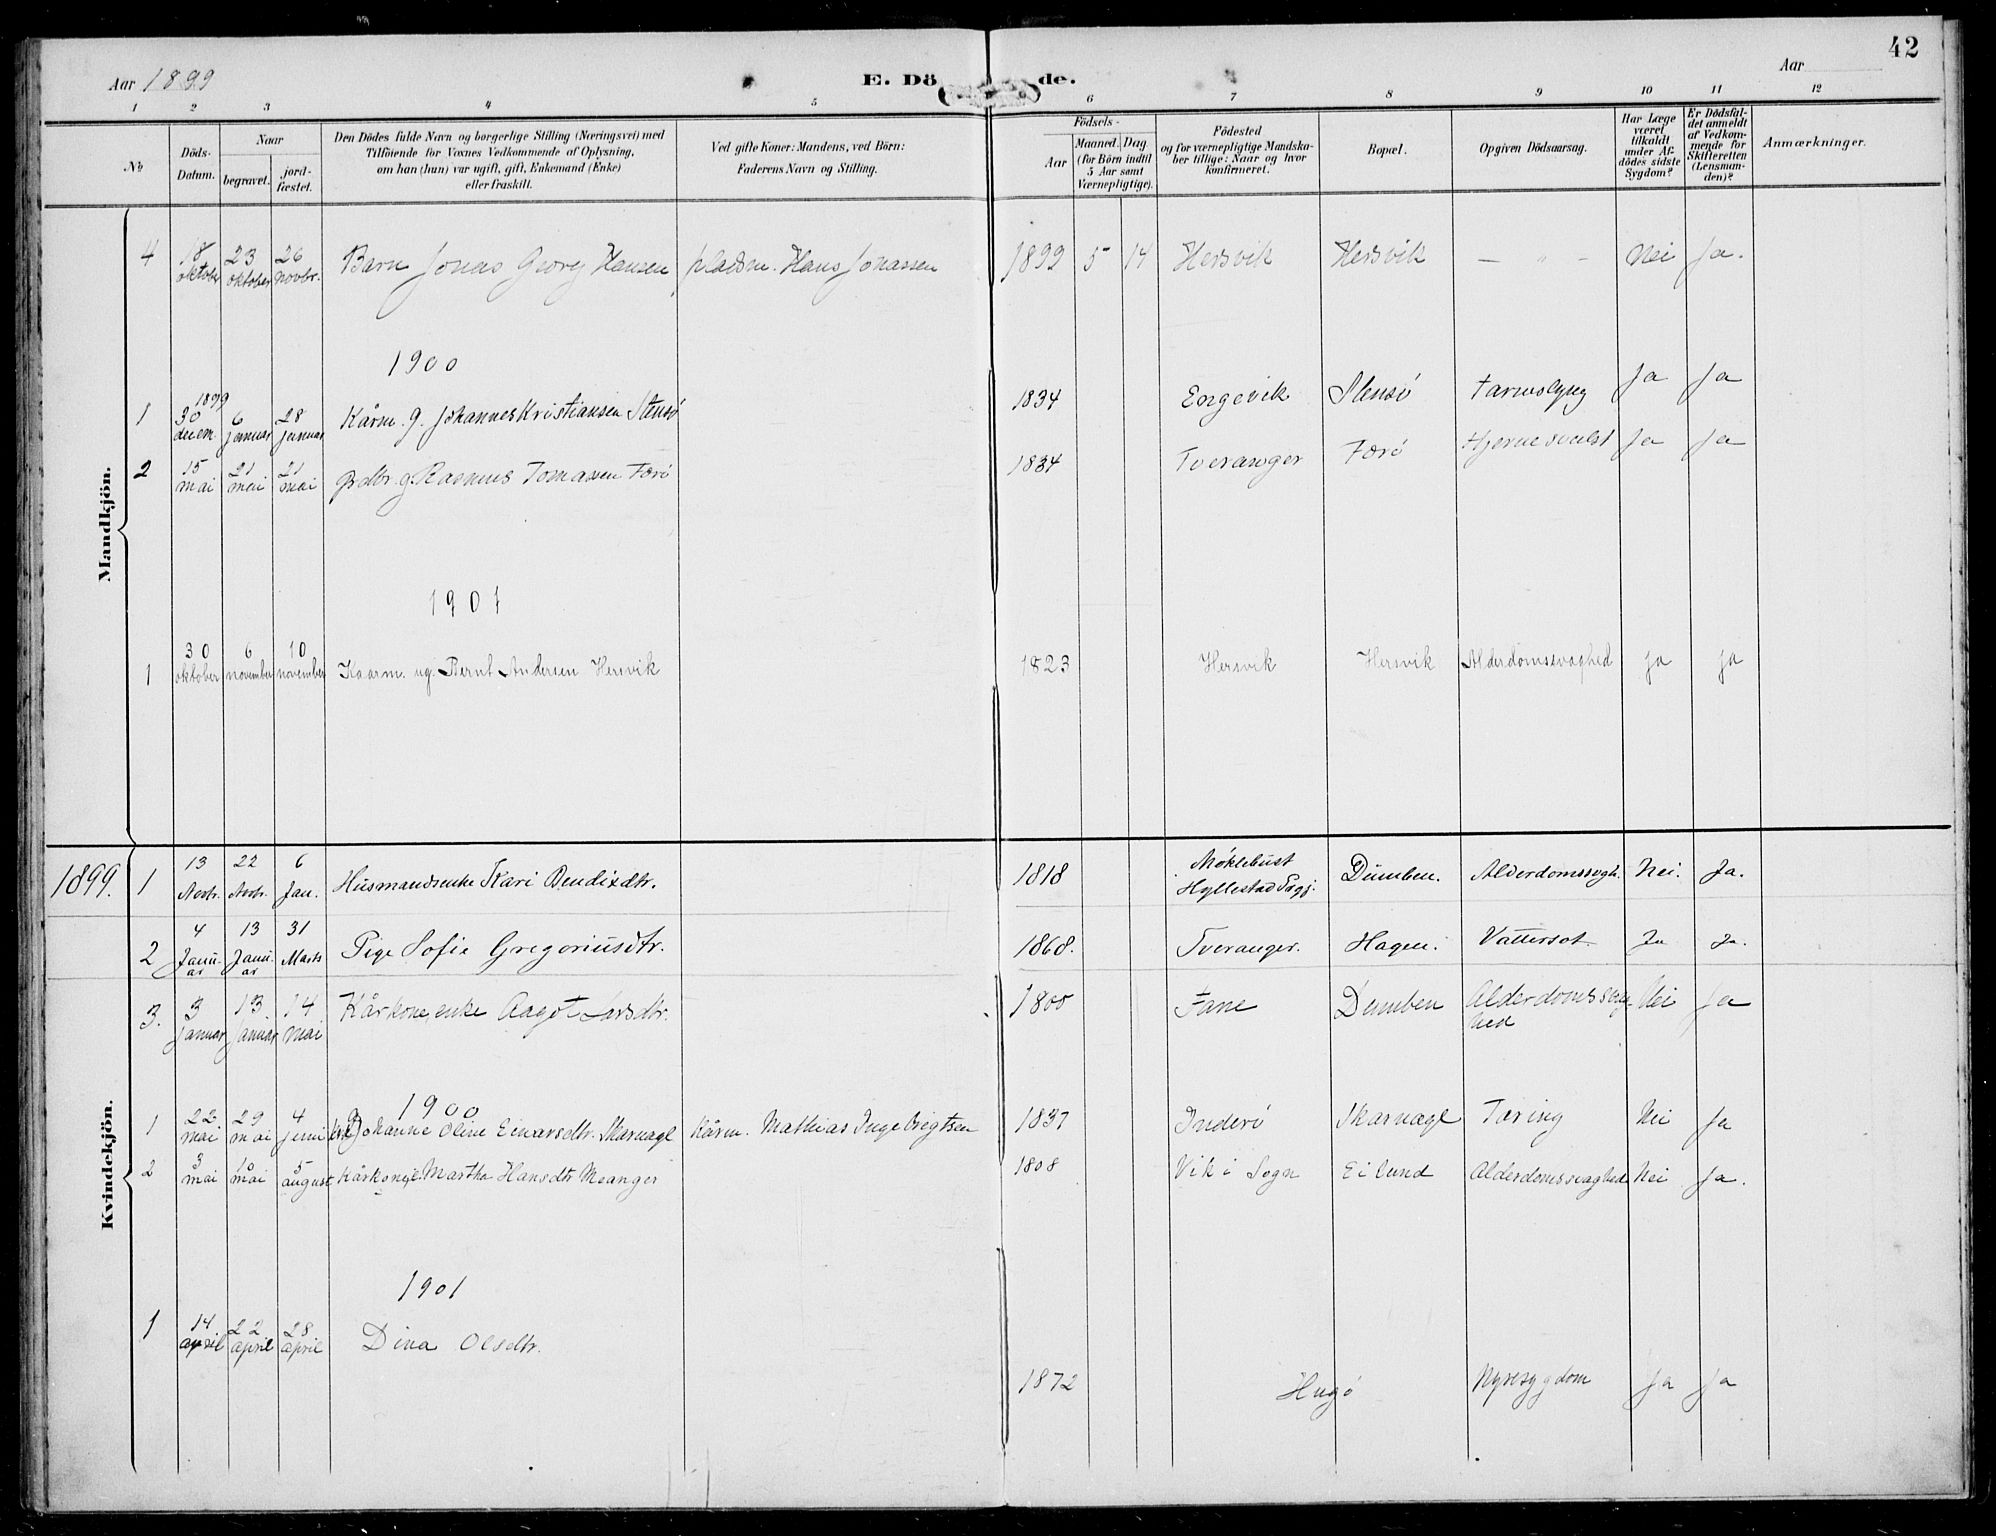 42
Aar 1899
E. Dö de.
Aar
1 2 3 4 5 6 7 8 9 10 11 12
No
Döds-Datum.
Naar
begravet.
jord-fæstet.
Den Dödes fulde Navn og borgerlige Stilling (Næringsvei) med
Tilföiende for Voxnes Vedkommende af Oplysning,
om han (hun) var ugift, gift, Enkemand (Enke)
eller fraskilt.
Ved gifte Koner: Mandens, ved Börn:
Faderens Navn og Stilling.
Födsels-
Aar
Maaned. Dag.
(for Börn indtil
5 Aar samt
Værnepligtige).
Födested
og for værnepligtige Mandska-
ber tillige: Naar og hvor
konfirmeret.
Bopæl.
Opgiven Dödsaarsag.
Har Læge
været
tilkaldt
under Af-
dödes sidste
Sygdom?
Er Dödsfal-
det anmeldt
af Vedkom-
mende for
Skifteretten
(Lensman-
den)?
Anmærkninger.
Mandkjön.
4 18 oktober 23 oktober 26 novbr. Barn Jonas Georg Hansen pladsm. Hans Jonassen 1899 5 14 Hersvik Hersvik — " — Nei Ja.
1900
1 1899 30 decem. 6 januar 28 januar Kårm. g. Johannes Kristiansen Stensö 1834 Engevik Stensö Tarmslyng Ja Ja
2 15 mai 21 mai 21 mai Grdbr. g. Rasmus Tomassen Færö 1834 Tveranger Færö Hjernesvulst Ja Ja
1901
1 30 oktober 6 november 10 november Kaarm. ug. Bernt Andersen Hersvik 1823 Hersvik Hersvik Alderdomssvaghed ja ja
Kvindekjön.
1899. 1 13 Novbr. 22 Novbr. 6 Jan. Husmandsenke Kari Bendixdtr. 1818 Möklebust Hyllestad Dumben. Alderdomssvgh. Nei. Ja.
2 4 Januar 13 Januar 31 Marts Pige Sofie Gregoriusdtr. 1868. Tveranger. Hagen. Vattersot Ja Ja.
3. 3 januar 13 januar 14 mai Kårkone, enke Aagot Larsdtr. 1800 Fane Dumben Alderdomssvaghed Nei Ja
1900
1 22 mai 29 mai 4 juni Johanne Oline Einarsdtr. Skarnagl Kårm. Mathias Ingebrigtsen 1837 Inderö Skarnagl Tæring Nei Ja
2 3 mai mai 5 august Kårkone Martha Hansdtr Meanger 1808 Vik i Sogn Eilund Alderdomssvaghed Nei Ja.
1901
1 14 april 22 april 28 april Dina Olsdtr. 1872 Hugö Nyresygdom Ja Ja